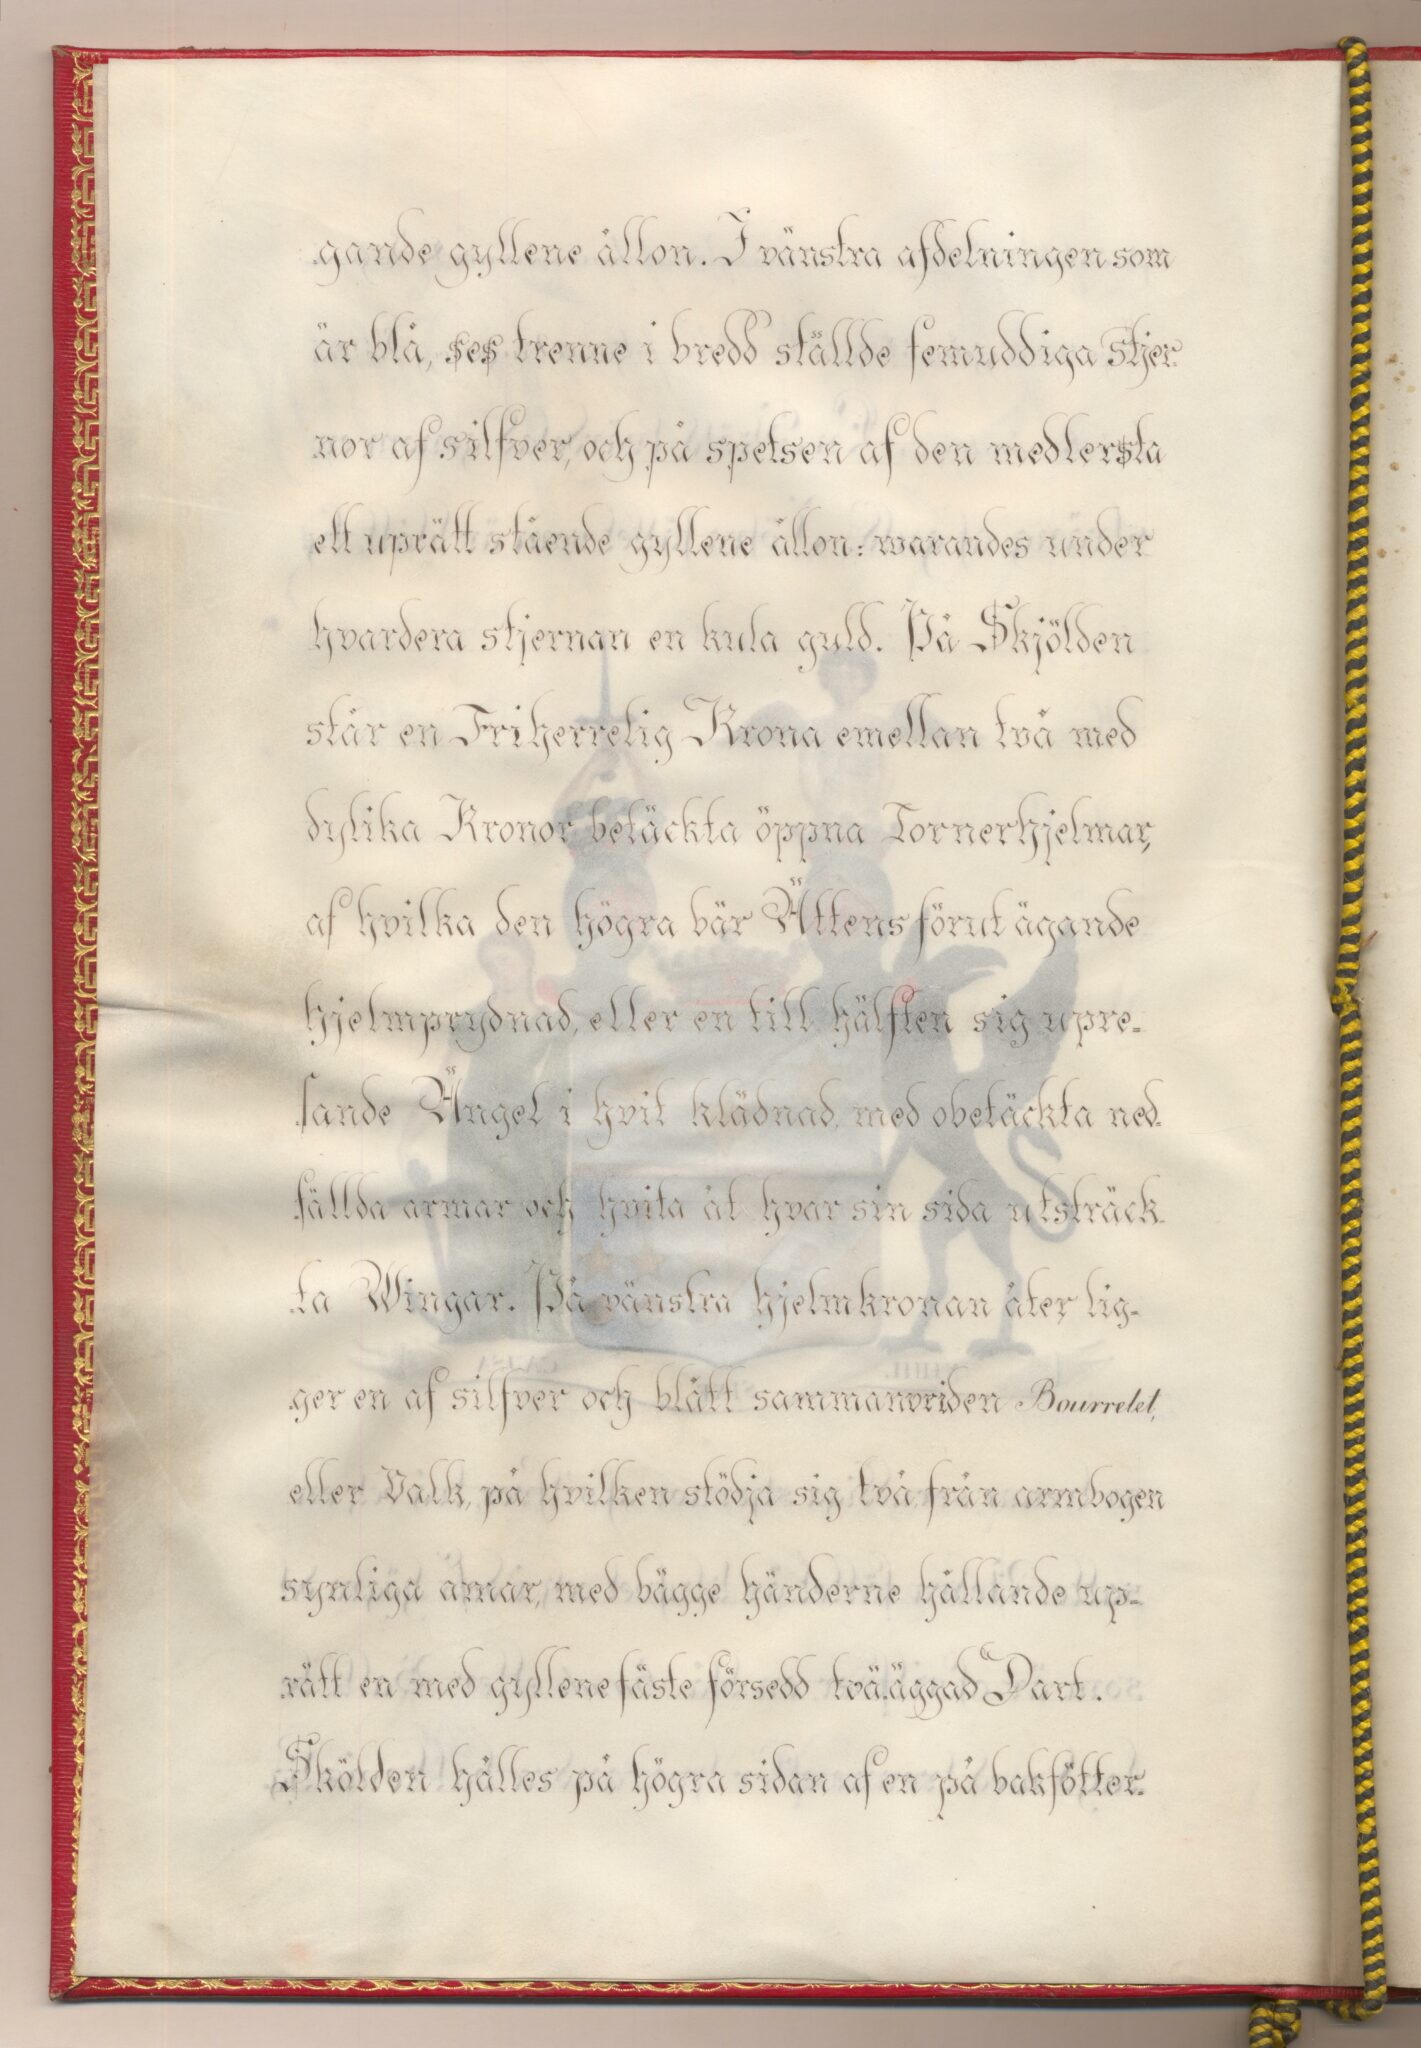 gande gyllene ållon. I vänstra afdelningen som
är blå, ses trenne i bredd ställde femuddiga Stjer-
nor af silfver, och på spetsen af den medlersta
ett uprätt stående gyllene ållon: warandes under
hvardera stjernan en kula guld. På Skjölden
står en Friherrelig Krona emellan två med
dylika Kronor betäckta öppna Tornerhjelmar,
af hvilka den högra bär Ättens förut ägande
hjelmprydnad, eller en till hälften sig upre-
sande Ängel i hvit klädnad, med obetäckta ned-
fällda armar och hvita åt hvar sin sida utsträck-
ta Wingar. På vänstra hjelmkronan åter lig-
ger en af silfver och blått sammanvriden Bourrelet,
eller Valk, på hvilken stödja sig två från armbogen
synliga amar, med bägge händerne hållande up-
rätt en med gyllene fäste försedd tvääggad Dart.
Skölden hålles på högra sidan af en på bakfötter-